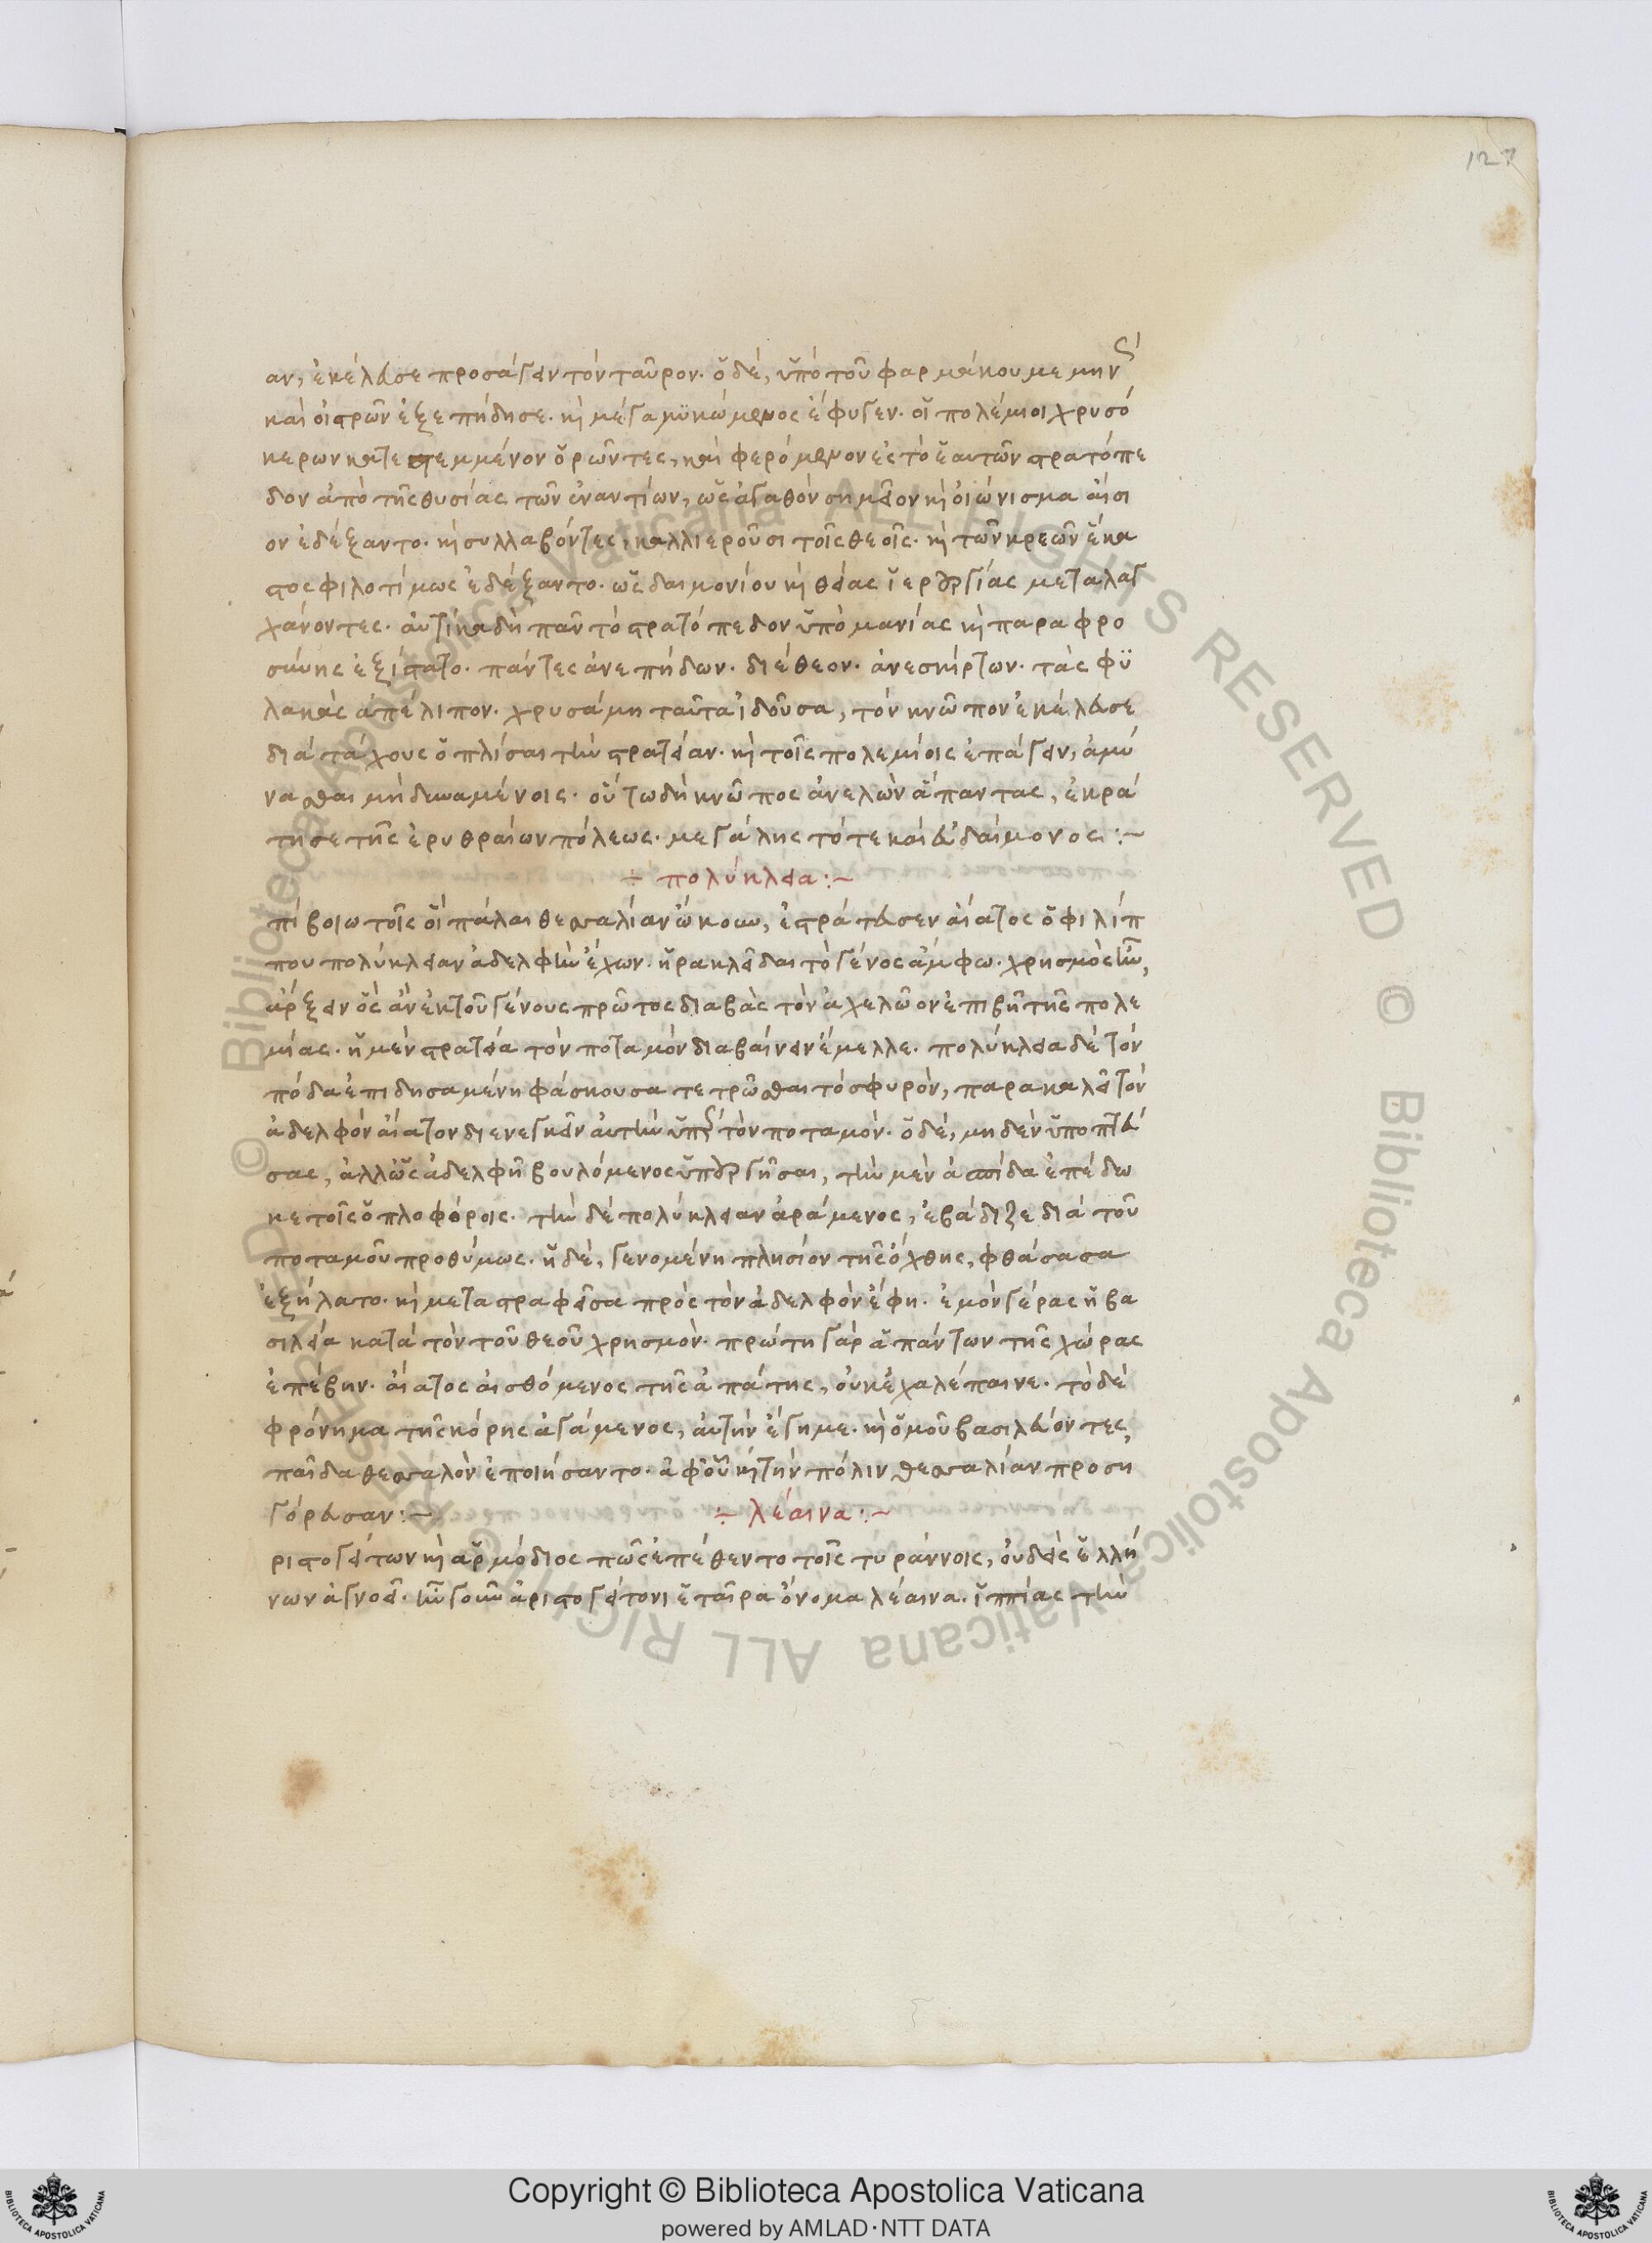 127
αν, ἐκέλευσε προσάγειν τὸν ταῦρον. ὁ δὲ, ὑπὸ τοῦ φαρμάκου μεμηνὼς
καὶ οἰστρῶν ἐξεπήδησε. κὶ μέγα μυκώμενος ἔφυγεν. οἱ πολέμιοι χρυσό
κερων κατεστεμμένον ὁρῶντες, καὶ φερόμενον ἐς τὸ ἑαυτῶν στρατόπε
δον ἀπὸ τῆς θυσίας τῶν ἐναντίων, ὡς ἀγαθὸν σημεῖον κὶ οἰώνισμα αἴσι
ον ἐδέξαντο. κὶ συλλαβόντες, καλλιεροῦσι τοῖς θεοῖς. κὶ τῶν κρεῶν ἕκα
στος φιλοτίμως ἐδέξαντο. ὡς δαιμονίου κὶ θείας ἱερουργίας μεταλαγ
χάνοντες. αὐτίκα δὴ πᾶν τὸ στρατόπεδον ὑπὸ μανίας κὶ παραφρο
σύνης ἐξίστατο. πάντες ἀνεπήδων. διέθεον. ἀνεσκίρτων. τὰς φυ
λακὰς ἀπέλιπον. χρυσάμη ταῦτα ἰδοῦσα, τὸν κνῶπον ἐκέλευσε
διὰ τάχους ὁπλίσαι τὴν στρατείαν. κὶ τοῖς πολεμίοις ἐπάγειν, ἀμύ
νασθαι μὴ δυναμένοις. οὕτω δὴ κνῶπος ἀνελὼν ἅπαντας, ἐκρά
τησε τῆς ἐρυθραίων πόλεως. μεγάλης τότε καὶ εὐδαίμονος :~
÷ πολύκλεια :~
πὶ βοιωτοῖς οἳ πάλαι θεσσαλίαν ᾤκουν, ἐστράτευσεν αἴατος ὁ φιλίπ
που πολύκλειαν ἀδελφὴν ἔχων. ἡρακλεῖδαι τὸ γένος ἄμφω. χρησμὸς ἦν,
ἄρξειν ὃς ἂν ἐκ τοῦ γένους πρῶτος διαβὰς τὸν ἀχελῶον ἐπιβῆ τῆς πολε
μίας. ἡ μὲν στρατεία τὸν ποταμὸν διαβαίνειν ἔμελλε. πολύκλεια δὲ τὸν
πόδα ἐπιδησαμένη φάσκουσα τετρῶσθαι τὸ σφυρὸν, παρακαλεῖ τὸν
ἀδελφὸν αἴατον διενεγκεῖν αὐτὴν ὑπὲρ τὸν ποταμόν. ὁ δὲ, μηδὲν ὑποπτεύ
σας, ἀλλ ὡς ἀδελφῆ βουλόμενος ὑπουργῆσαι, τὴν μὲν ἀσπίδα ἐπέδω
κε τοῖς ὁπλοφόροις. τὴν δὲ πολύκλειαν ἀράμενος, ἐβάδιζε διὰ τοῦ
ποταμοῦ προθύμως. ἡ δὲ, γενομένη πλησίον τῆς ὄχθης, φθάσασα
ἐξήλατο. κὶ μεταστραφεῖσα πρὸς τὸν ἀδελφὸν ἔφη. ἐμὸν γέρας ἡ βα
σιλεία κατὰ τὸν τοῦ θεοῦ χρησμόν. πρώτη γὰρ ἁπάντων τῆς χώρας
ἐπέβην. αἴατος αἰσθόμενος τῆς ἀπάτης, οὐκ ἐχαλέπαινε. τὸ δὲ
φρόνημα τῆς κόρης ἀγάμενος, αὐτὴν ἔγημε. κὶ ὁμοῦ βασιλεύοντες,
παῖδα θεσσαλὸν ἐποιήσαντο. ἀφ οὗ κὶ τὴν πόλιν θεσσαλίαν προση
γόρευσαν :~ ÷ λέαινα :~
ριστογείτων κὶ ἁρμόδιος πῶς ἐπέθεντο τοῖς τυράννοις, οὐδεὶς ἑλλή
νων ἀγνοεῖ. ἦν γοῦν ἀριστογείτονι ἑταῖρα ὄνομα λέαινα. ἱππίας τὴν
© Biblioteca Apostolica Vaticana ALL RIGHTS RESERVED © Biblioteca Apostolica Vaticana ALL RIGHTS RESERVED
BIBLIOTECA APOSTOLICA VATICANA
Copyright © Biblioteca Apostolica Vaticana
powered by AMLAD·NTT DATA
BIBLIOTECA APOSTOLICA VATICANA